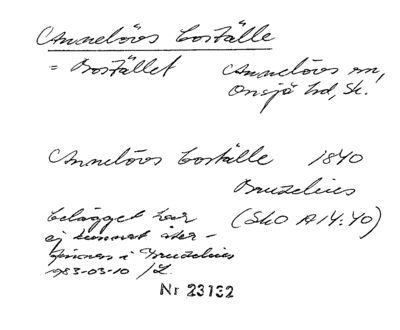 Annelövs boställe
= Bostället Annelövs sn,
Onsjö hd, Sk.
Annelövs boställe 1840
Bruzelius
belägget har (SkO A14:40)
ej kunnat åter-
finnas i Bruzelius
1983-03-10 /L.
Nr 23132